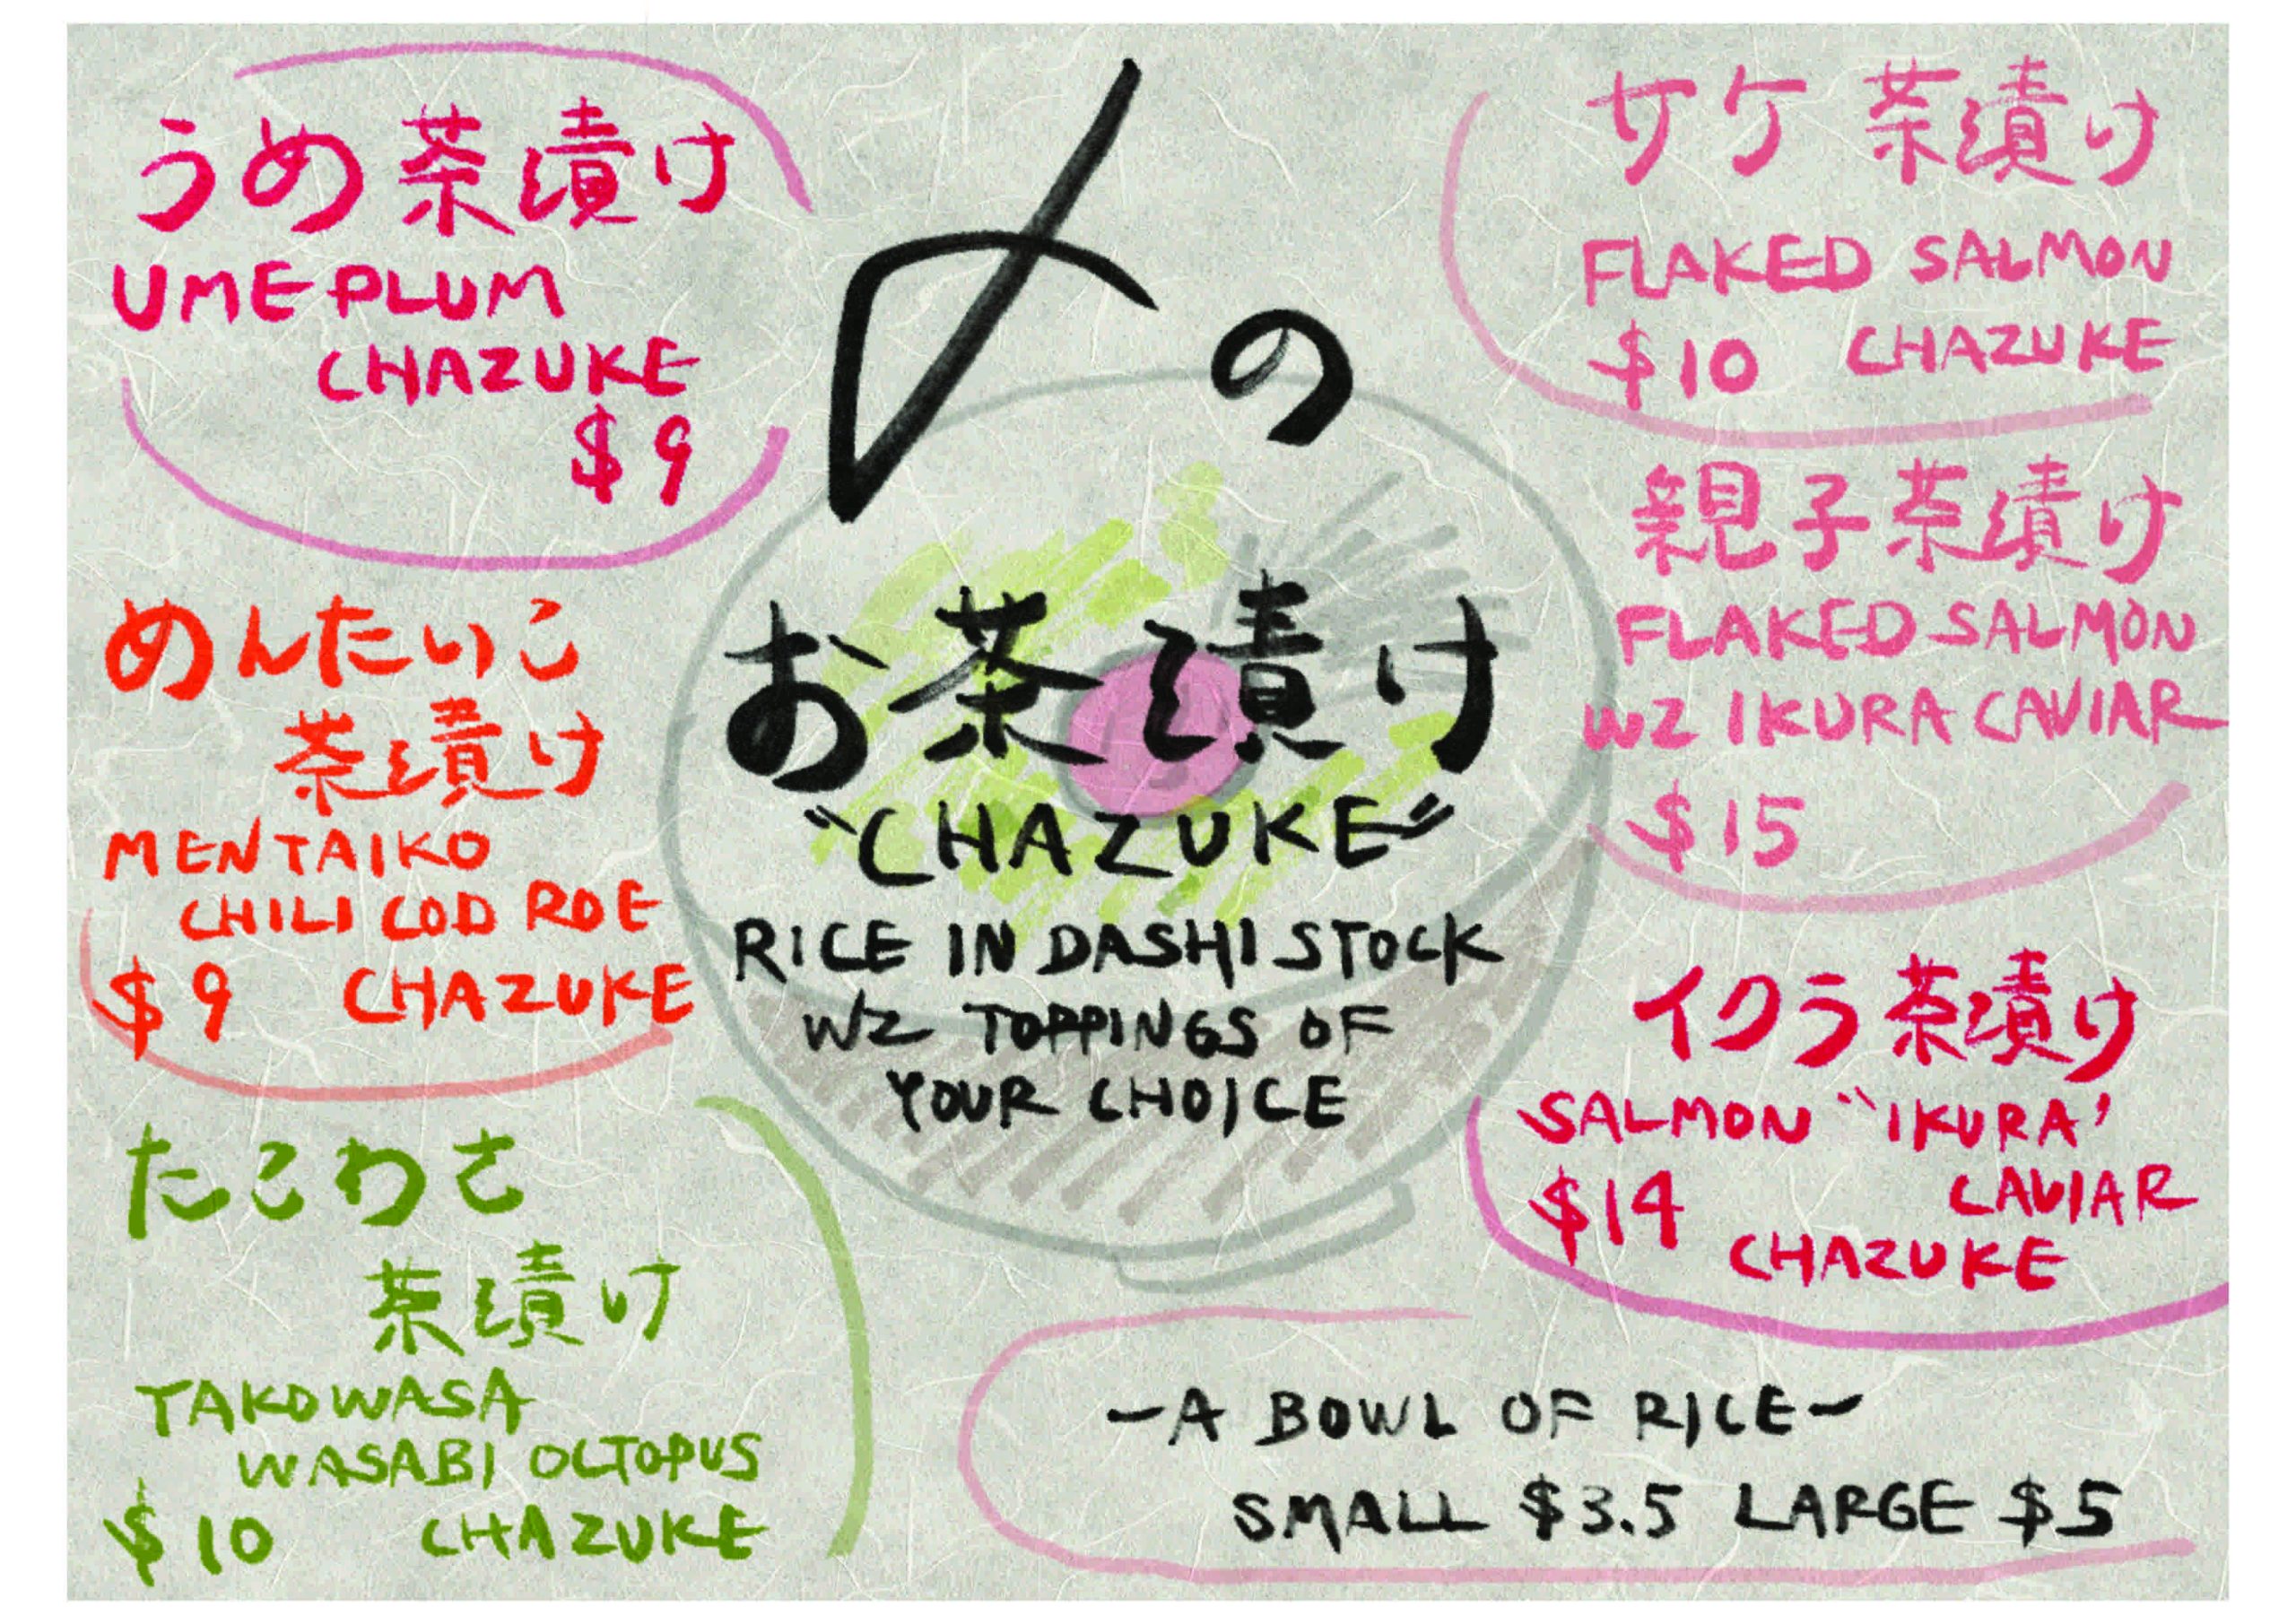 うめ茶漬け
UME PLUM
CHAZUKE
$9
めんたいこ
茶漬け
MENTAIKO
CHILI COD ROE
$9 CHAZUKE
たこわさ
茶漬け
TAKOWASA
WASABI OCTOPUS
$10 CHAZUKE
〆の
お茶漬け
"CHAZUKE"
RICE IN DASHI STOCK
WZ TOPPINGS OF
YOUR CHOICE
サケ茶漬け
FLAKED SALMON
$10 CHAZUKE
親子茶漬け
FLAKED SALMON
WZ IKURA CAVIAR
$15
イクラ茶漬け
SALMON "IKURA'
CAVIAR
$14
CHAZUKE
-A BOWL OF RICE-
SMALL $3.5 LARGE $5